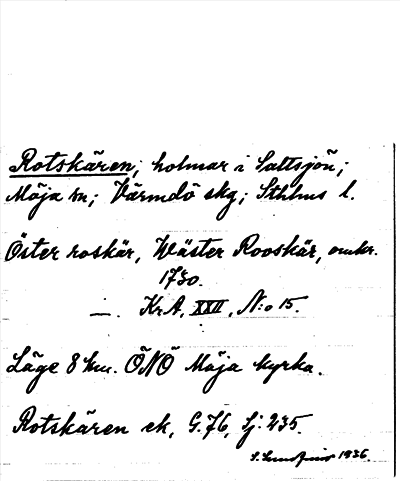 Rotskären; holmar i Saltsjön;
Möja sn; Värmdö skg; Sthlms l.
Öster roskär, Wäster Rooskär, omkr.
1730.
—. Kr.A, XXII, N:o 15.
Läge 8 km. ÖNÖ Möja kyrka.
Rotskären ek, G.76, Sj: 235.
1936.